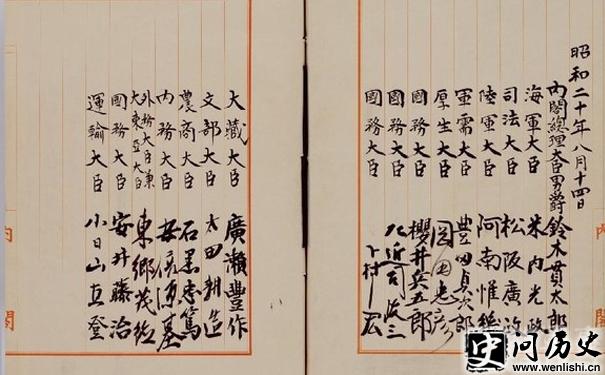 昭和二十年八月十四日
内閣總理大臣男爵 鈴木貫太郎
海軍大臣 米内光政
司法大臣 松阪廣政
陸軍大臣 阿南惟幾
軍需大臣 豊田貞次郎
厚生大臣 岡田忠彦
國務大臣 櫻井兵五郎
國務大臣 左近司政三
國務大臣 下村宏
大藏大臣 廣瀬豊作
文部大臣 太田耕造
農商大臣 石黒忠篤
内務大臣 安倍源基
外務大臣兼
大東亞大臣 東郷茂徳
國務大臣 安井藤治
運輸大臣 小日山直登
内閣
内閣
史问历史
www.wenlishi.cn